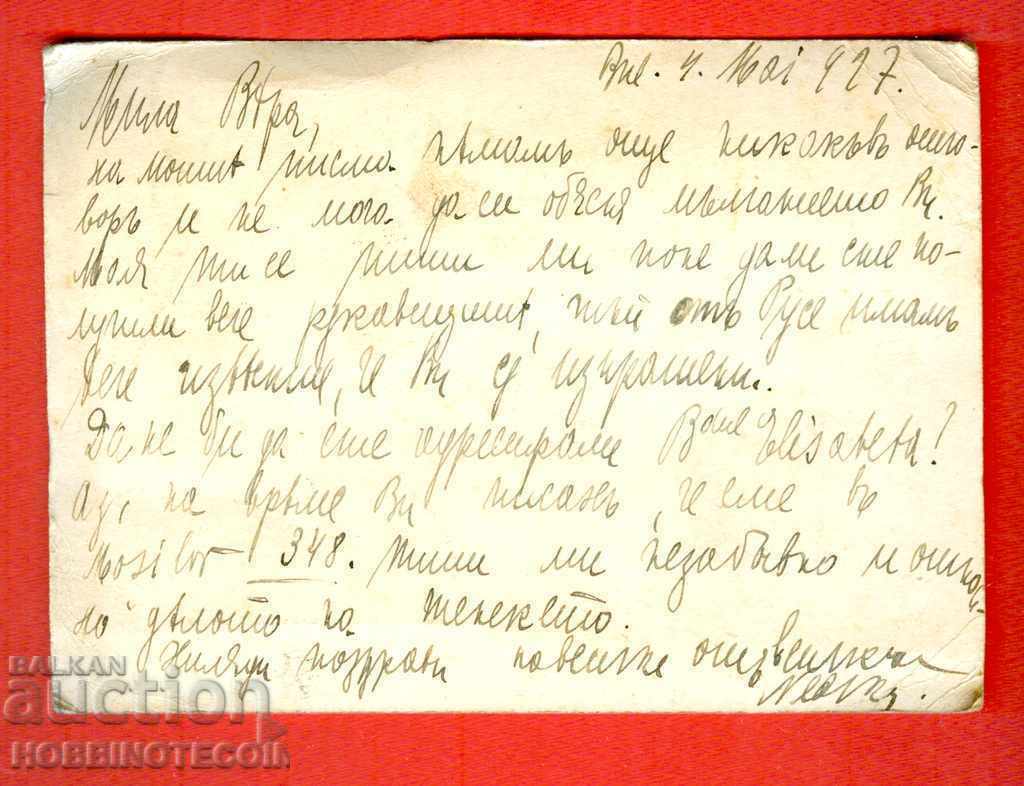 Вuс. 4. Mai 927.
Мила Вѣра,
на моитѣ писма нѣмамъ още никакъвъ отго-
воръ и не мога да си обясня мълчанието Ви.
Моля ти се пиши ми поне дали сте по-
лучили вече ръкавицитѣ, тъй отъ Русе имамъ
вече известие, че Ви сѫ изпратени.
Да не би да сте адресирали Bdul Elisabeta?
Аз, на врѣме Ви писахъ, че сме въ
Mosilor 348. Пиши ми незабавно и относ-
но дѣлото на тенекето.
Хиляди поздрави на всички отъ всички
BALKAN
auction
HOBBINOTECOIN